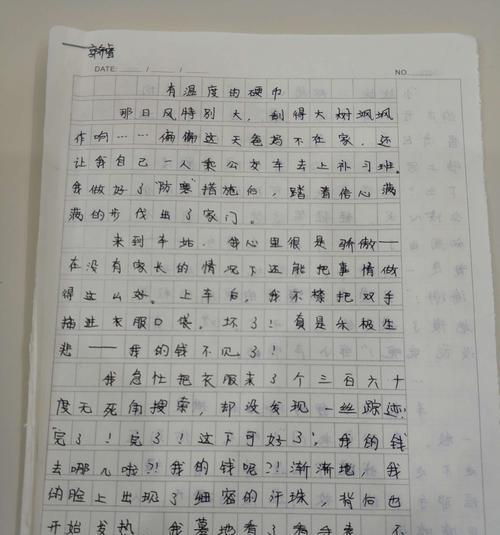 DATE: / / NO.
有温度的硬币
那日风特别大，刮得大树飒飒
作响……偏偏这天爸妈不在家，还
让我自己一人乘公交车去上补习班。
我做好了“防寒”措施后，踏着信心满
满的步伐出了家门。
来到车站，我心里很是骄傲——
在没有家长的情况下还能把事情做
得这么好。上车后，我不禁把双手
插进衣服口袋。坏了！真是乐极生
悲——我的钱不见了！
我急忙把衣服来了个三百六十
度无死角搜索，却没发现一丝踪迹。
“完了！完了！这下可好了”，我的钱
去哪儿啦？！我的钱呢？！渐渐地，我
的脸上出现了细密的汗珠，背后也
开始发热。我蓦地看了看手表，不